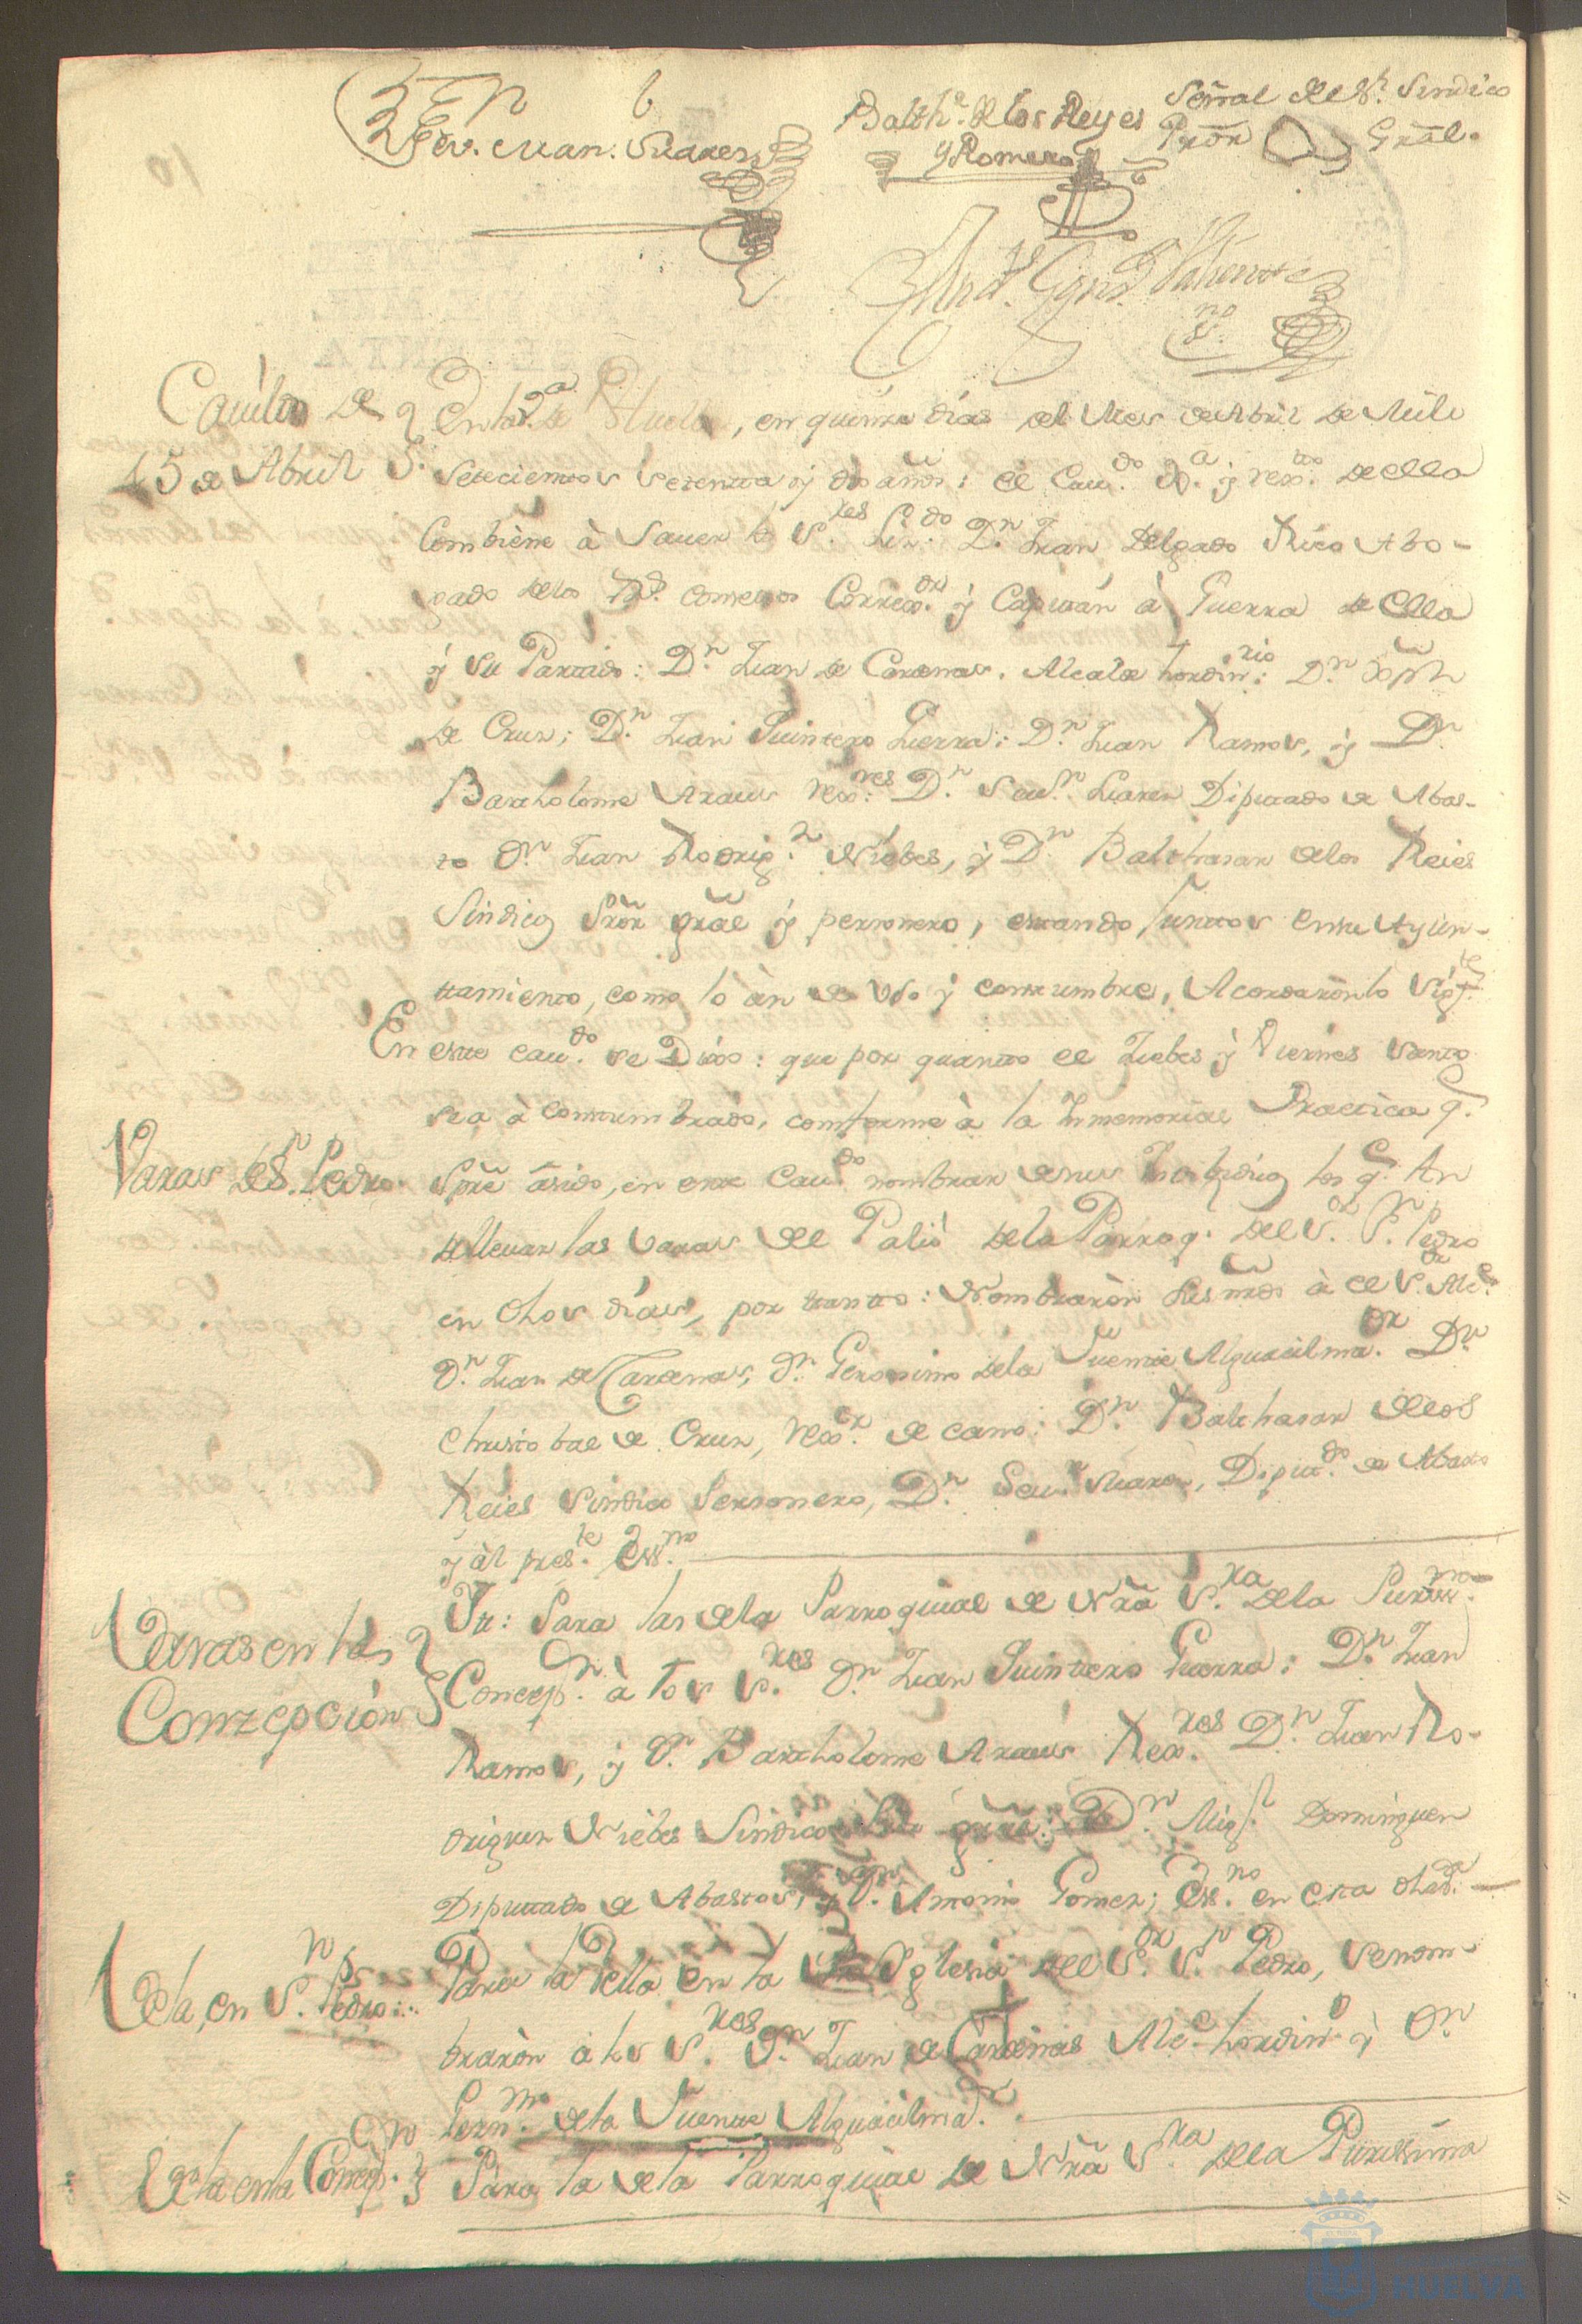 Sev. Man. Suarez
Balth.r de los Reyes
y Romero
Señal del S.r Sindico
Prōr Grāl.
Cauildo de
15 de Abril
En la V.a de Huelva, en quinze dias del Mes de Abril de Mile
Setecientos setenta y dos años: el Cau.do Ju.a y rex.to de ella
Combiene à Saver los S.res Liz.do D.n Juan Delgado Rico Abo-
gado de los R.s Consejos Correx.or y Capitán à Guerra de ella
y su Partido: D.n Juan de Cardenas, Alcalde hordin.rio D.n Joseph
de Cruz; D.n Juan Quintero Guerra: D.n Juan Ramos, y D.n
Bartholome Araus Rex.res D.n Seu.n Suarez Diputado de Abas-
to D.n Juan Rodrig.z Niebes, y D.n Balthasar de los Reies
Sindico Prōr grāl y personero, estando juntos en su Ayun-
tamiento, como lo àn de Uso y costumbre, Acordarōn lo sig.te
En este cau.do se Dixo: que por quanto el Juebes y Viernes Santo
se a à costumbrado, conforme à la Inmemorial Practica q.e
Varas de S.n Pedro.
Spre āsido, en este Cau.do nombrar los q.e hn
de lleuar las Varas del Palio de la Parroq. del S.or S.n Pedro
en dhos dias, por tanto: Nombrarōn sus mds à el S.or Alc.e
D.n Juan de Cardenas, D.n Geronimo de la Fuente Alguacilma.or D.n
Christobal de Cruz, Rex.or de cano: D.n Balthasar de los
Reies Sindico Personero, D.n Seu.n Suarez, Diput.do de Abasto
y àl pres.te Ess.no
Varas en la
Conzepcion
Yt: Para las de la Parroquial de Nrā S.ra de la Puriss.ma
Concep.on à los S.res D.n Juan Quintero Guerra: D.n Juan
Ramos, y D.n Bartholome Araus Rex.res D.n Juan Ro-
driguez Niebes Sindico Prōr grāl: D.n Mig.l Dominguez
Diputado de Abastos, y D.n Antonio Gomez; Ess.no en esta dha V.a
Vela, en S.n Pedro:..
Para la Vella en la Yglesia del S.or S.n Pedro, se nom-
brarōn a los S.res D.n Juan de Cardenas Alc.e hordin.o y D.n
Gern.mo de la Fuente Alguacilma.or
Vela en la Concep.on
Para la de la Parroquial de Nrā S.ra de la Purissima
HUELVA